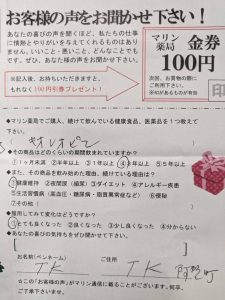 お客様の声をお聞かせ下さい！
あなたの喜びの声を聞くほど、私たちの仕事
に情熱とやりがいを与えてくれるものはあり
ません。いいこと・悪いこと、どんなことでも
です。ぜひ、あなたの声をお聞かせ下さい。
※記入後、お持ちいただきますと、
もれなく100円引券プレゼント！
マリン薬局 金券
100円
次回、お買物の際に
ご利用下さい。
※印があるものが有効
印
◆マリン薬局でご購入、続けて飲んでいる健康食品、医薬品を1つ教えて
下さい。
◆その商品はどのくらいの期間飲まれていますか？
①1ヶ月未満 ②半年以上 ③1年以上 ④3年以上 ⑤5年以上
◆また、その商品を飲み始めた理由、続けている理由は？
①健康維持 ②夜間尿（頻尿） ③ダイエット ④アレルギー疾患
⑤生活習慣病（高血圧・糖尿病・脂質異常症など） ⑥便秘
⑦その他（
◆服用してみて変化はどうですか？
①とても良くなった ②良くなった ③少し良くなった ④分からない
◆あなたの喜びの気持ちをぜひお聞かせ下さい。
お名前(ペンネーム) ご住所
TK TK
☆この「お客様の声」がマリン通信に載ることがございます。何卒、
ご了承下さいませ。